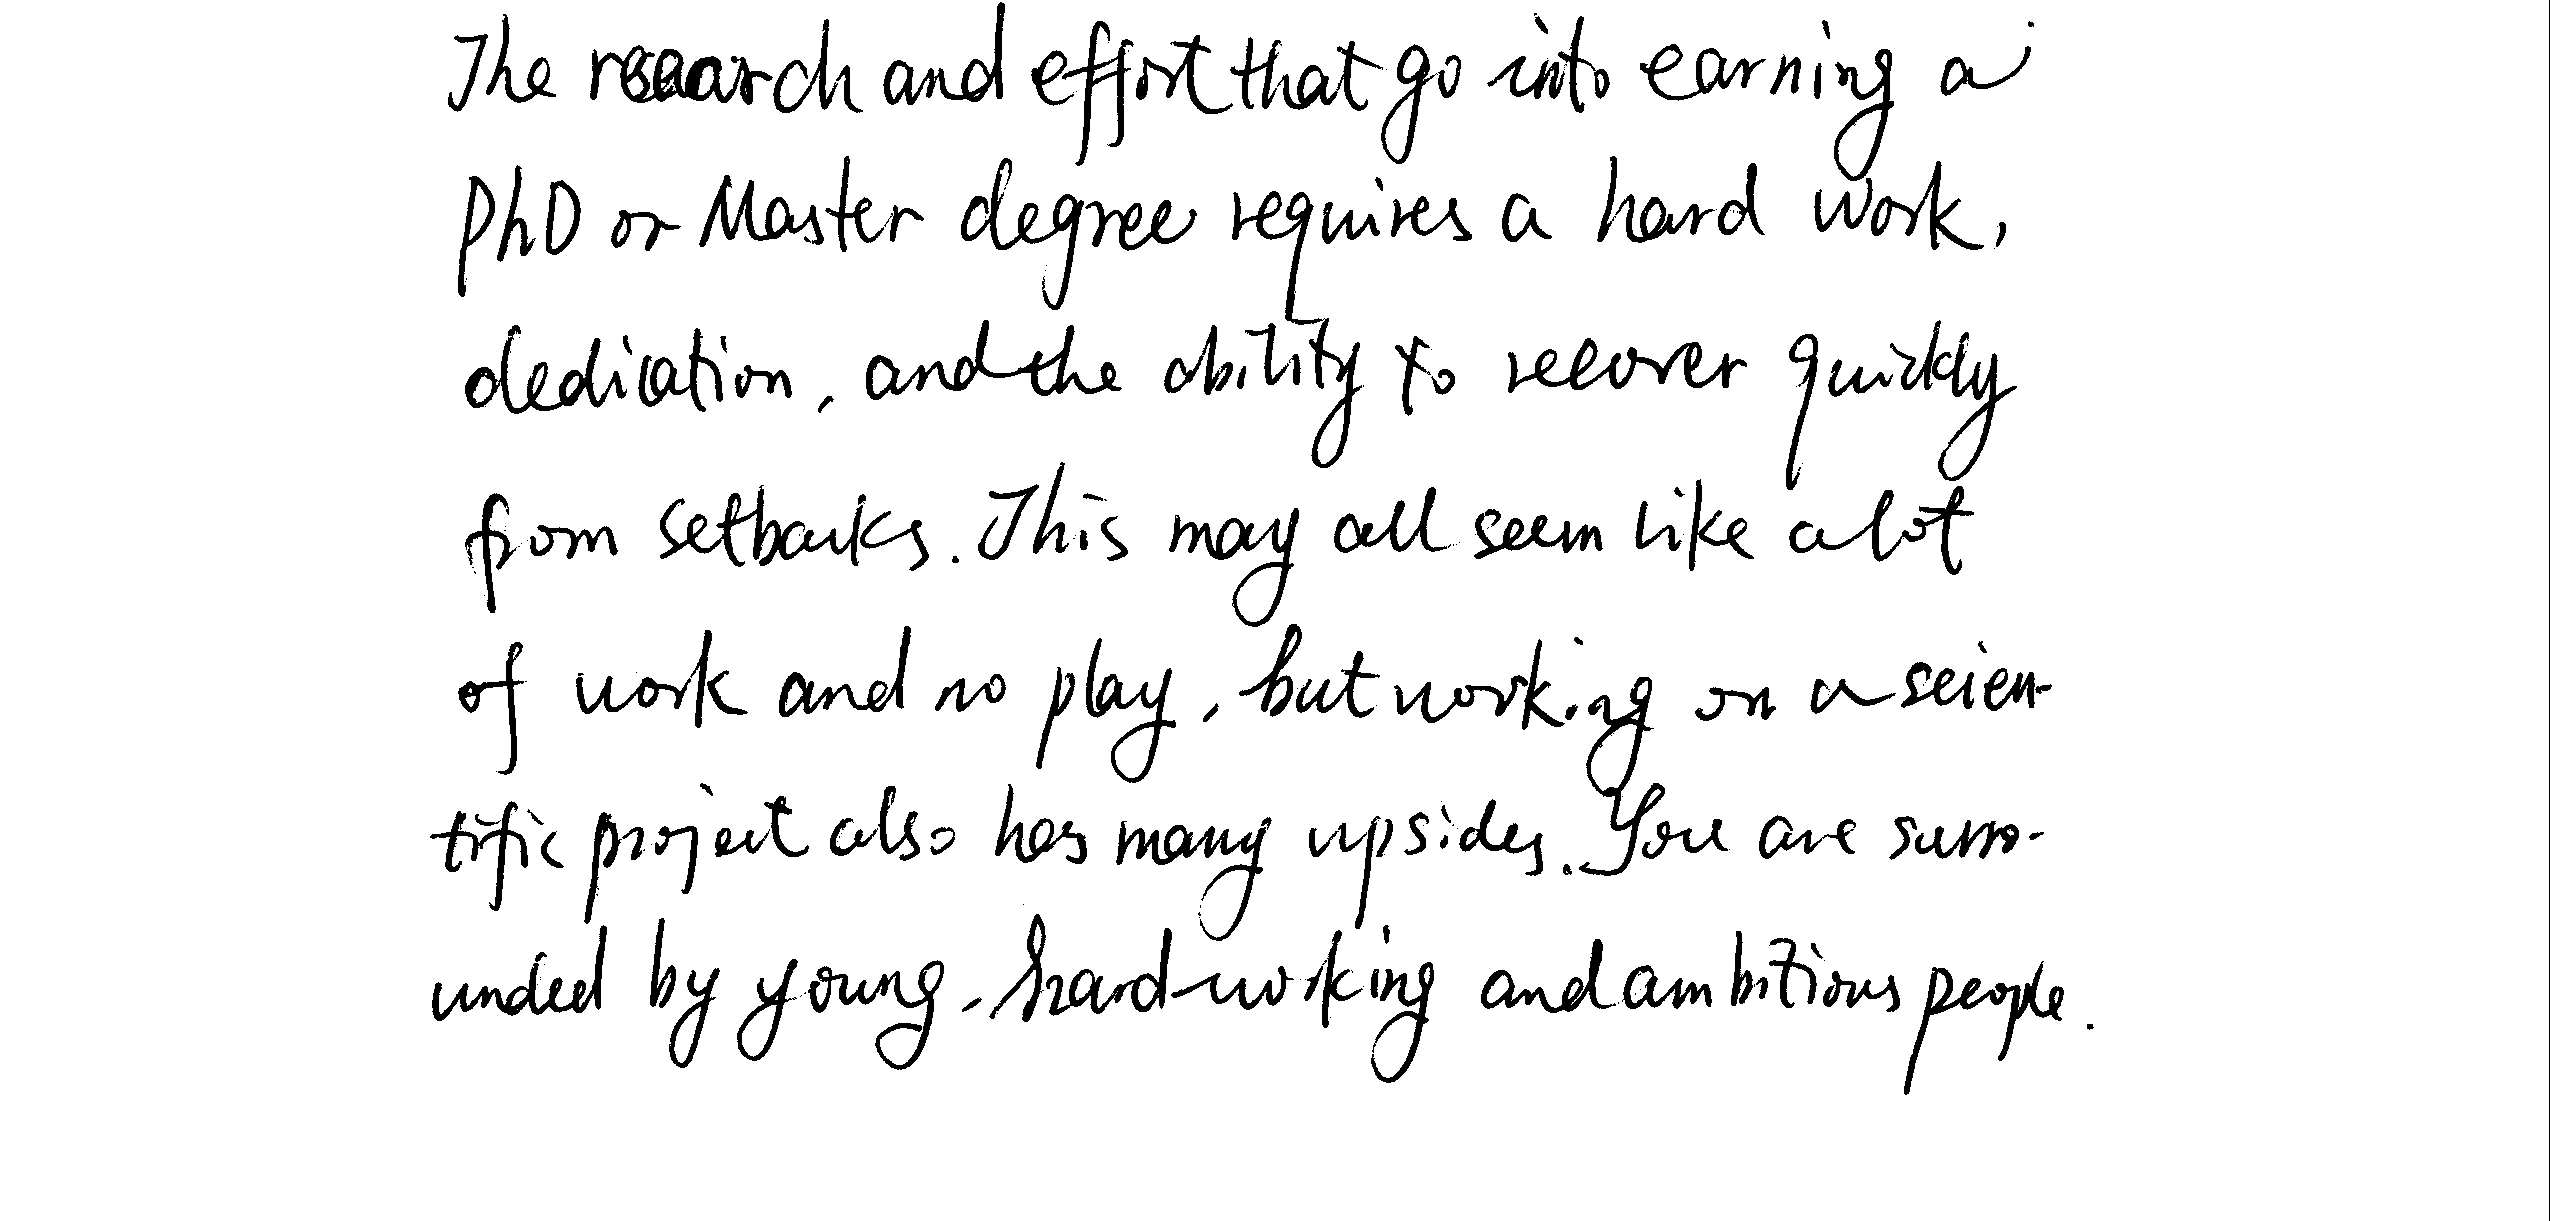 The research and effort that go into earning a
PhD or Master degree requires a hard work,
dedication, and the ability to recover quickly
from setbacks. This may all seem like a lot
of work and no play, but working on a scien-
tific project also has many upsides. You are surro-
unded by young, hard-working and ambitious people.